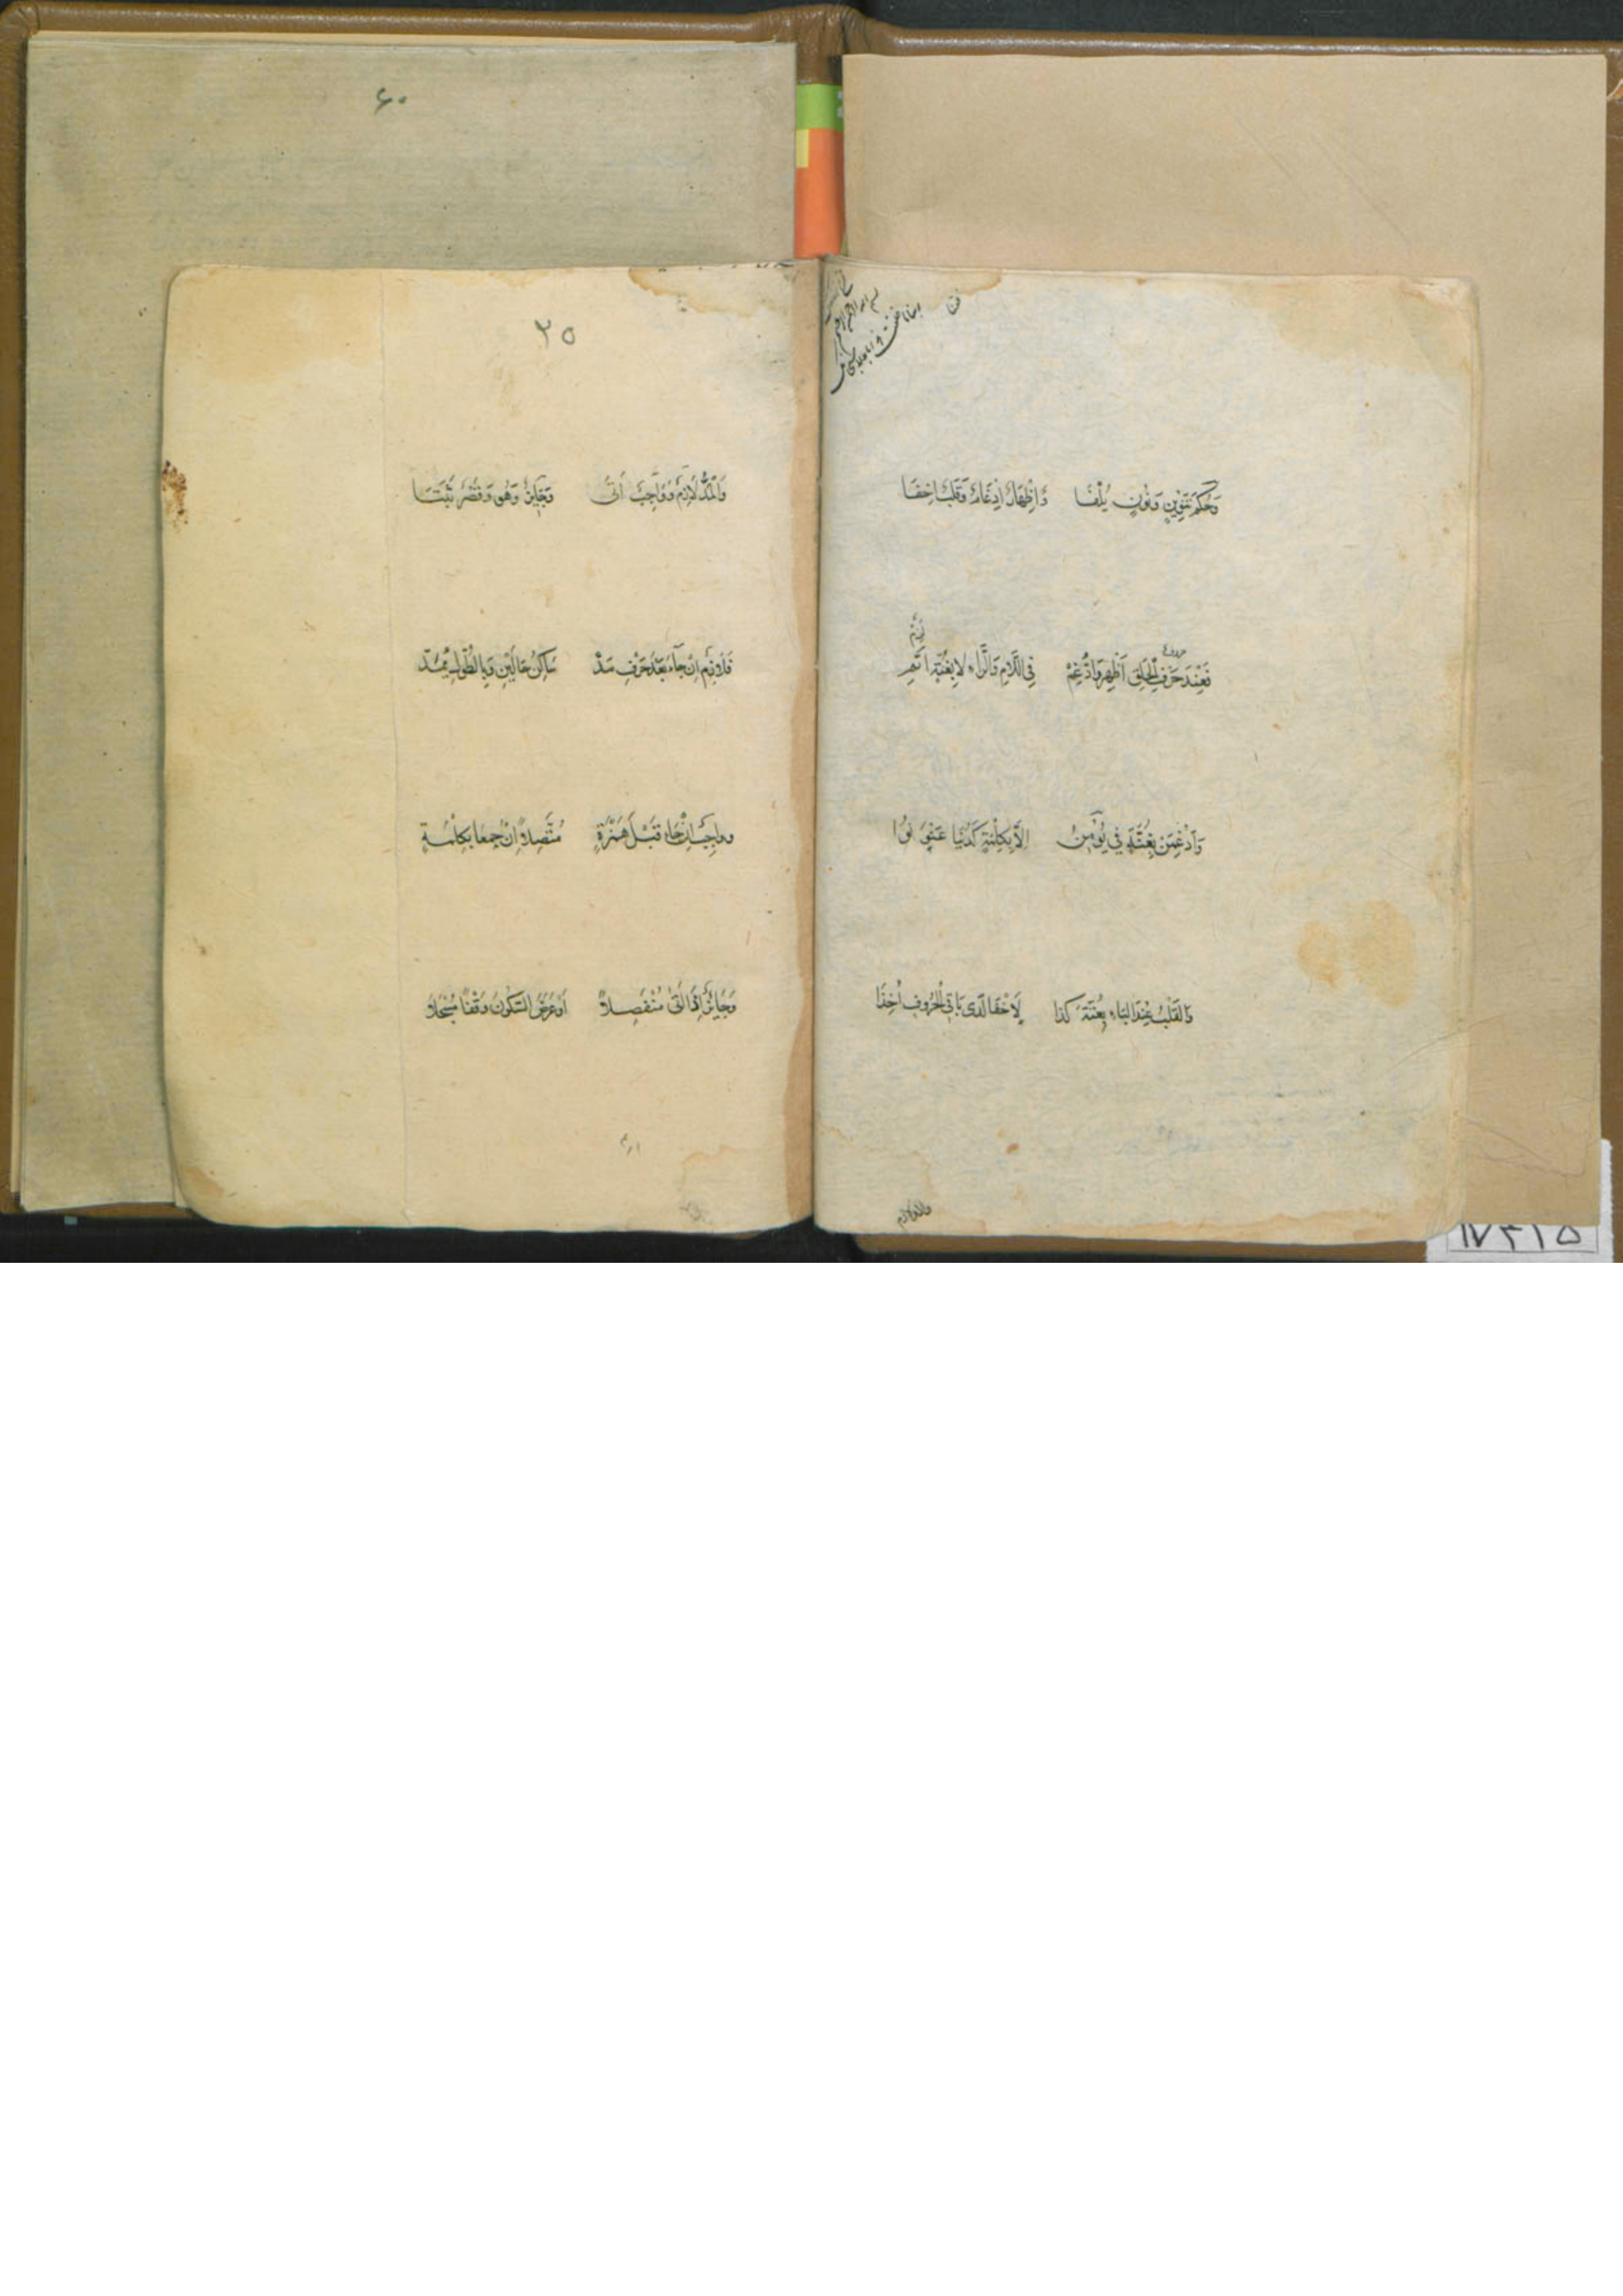 وَحُكْمُ تَنْوِينٍ وَنُونٍ يُلْفَا اِظْهَارٌ اِدْغَامٌ وَقَلْبٌ اِخفَا
حروف
فَعِنْدَ حَرْفِ الْحَلْقِ اَظْهِرْ وَادَّغِمْ فِى اللَّامِ وَالرَّاءِ لا بِغُنَّةٍ اَتَمّ
لَزِمْ
وَاَدْغِمَنْ بِغُنَّةٍ فِي يُوْمِنُ اِلَّا بِكِلْمَةٍ كَدُنْيَا عَنْوَنُوا
وَالقَلْبُ عِنْدَ البَاءِ بِغُنَّةٍ كذا لِاخْفَا لَدى بَاقِي الْحُرُوفِ اُخِذَا
والمد لازم
٢٥
وَالْمَدُّ لَازِمٌ وَوَاجِبٌ اَتَى وَجَايِزٌ وَهْوَ وَقَصْرٌ ثَبَتَا
فَلَازِمٌ اِنْ جَآءَ بَعْدَ حَرْفِ مَدّْ سَاكِنُ حَالَيْنِ وَبِالطُّولِ يُمَدّْ
وواجِبٌ اِنْ جَاءَ قَبْلَ هَمْزَةٍ مُتَّصِلًا اِنْ جُمِعَا بِكِلْمَةٍ
وَجَايِزٌ اِذَا اَتَى مُنْفَصِلًا اَوْ عَرَضَ السُّكُونُ وَقْفًا مُسْجَلًا
۶۰
۱۷۳۱۵